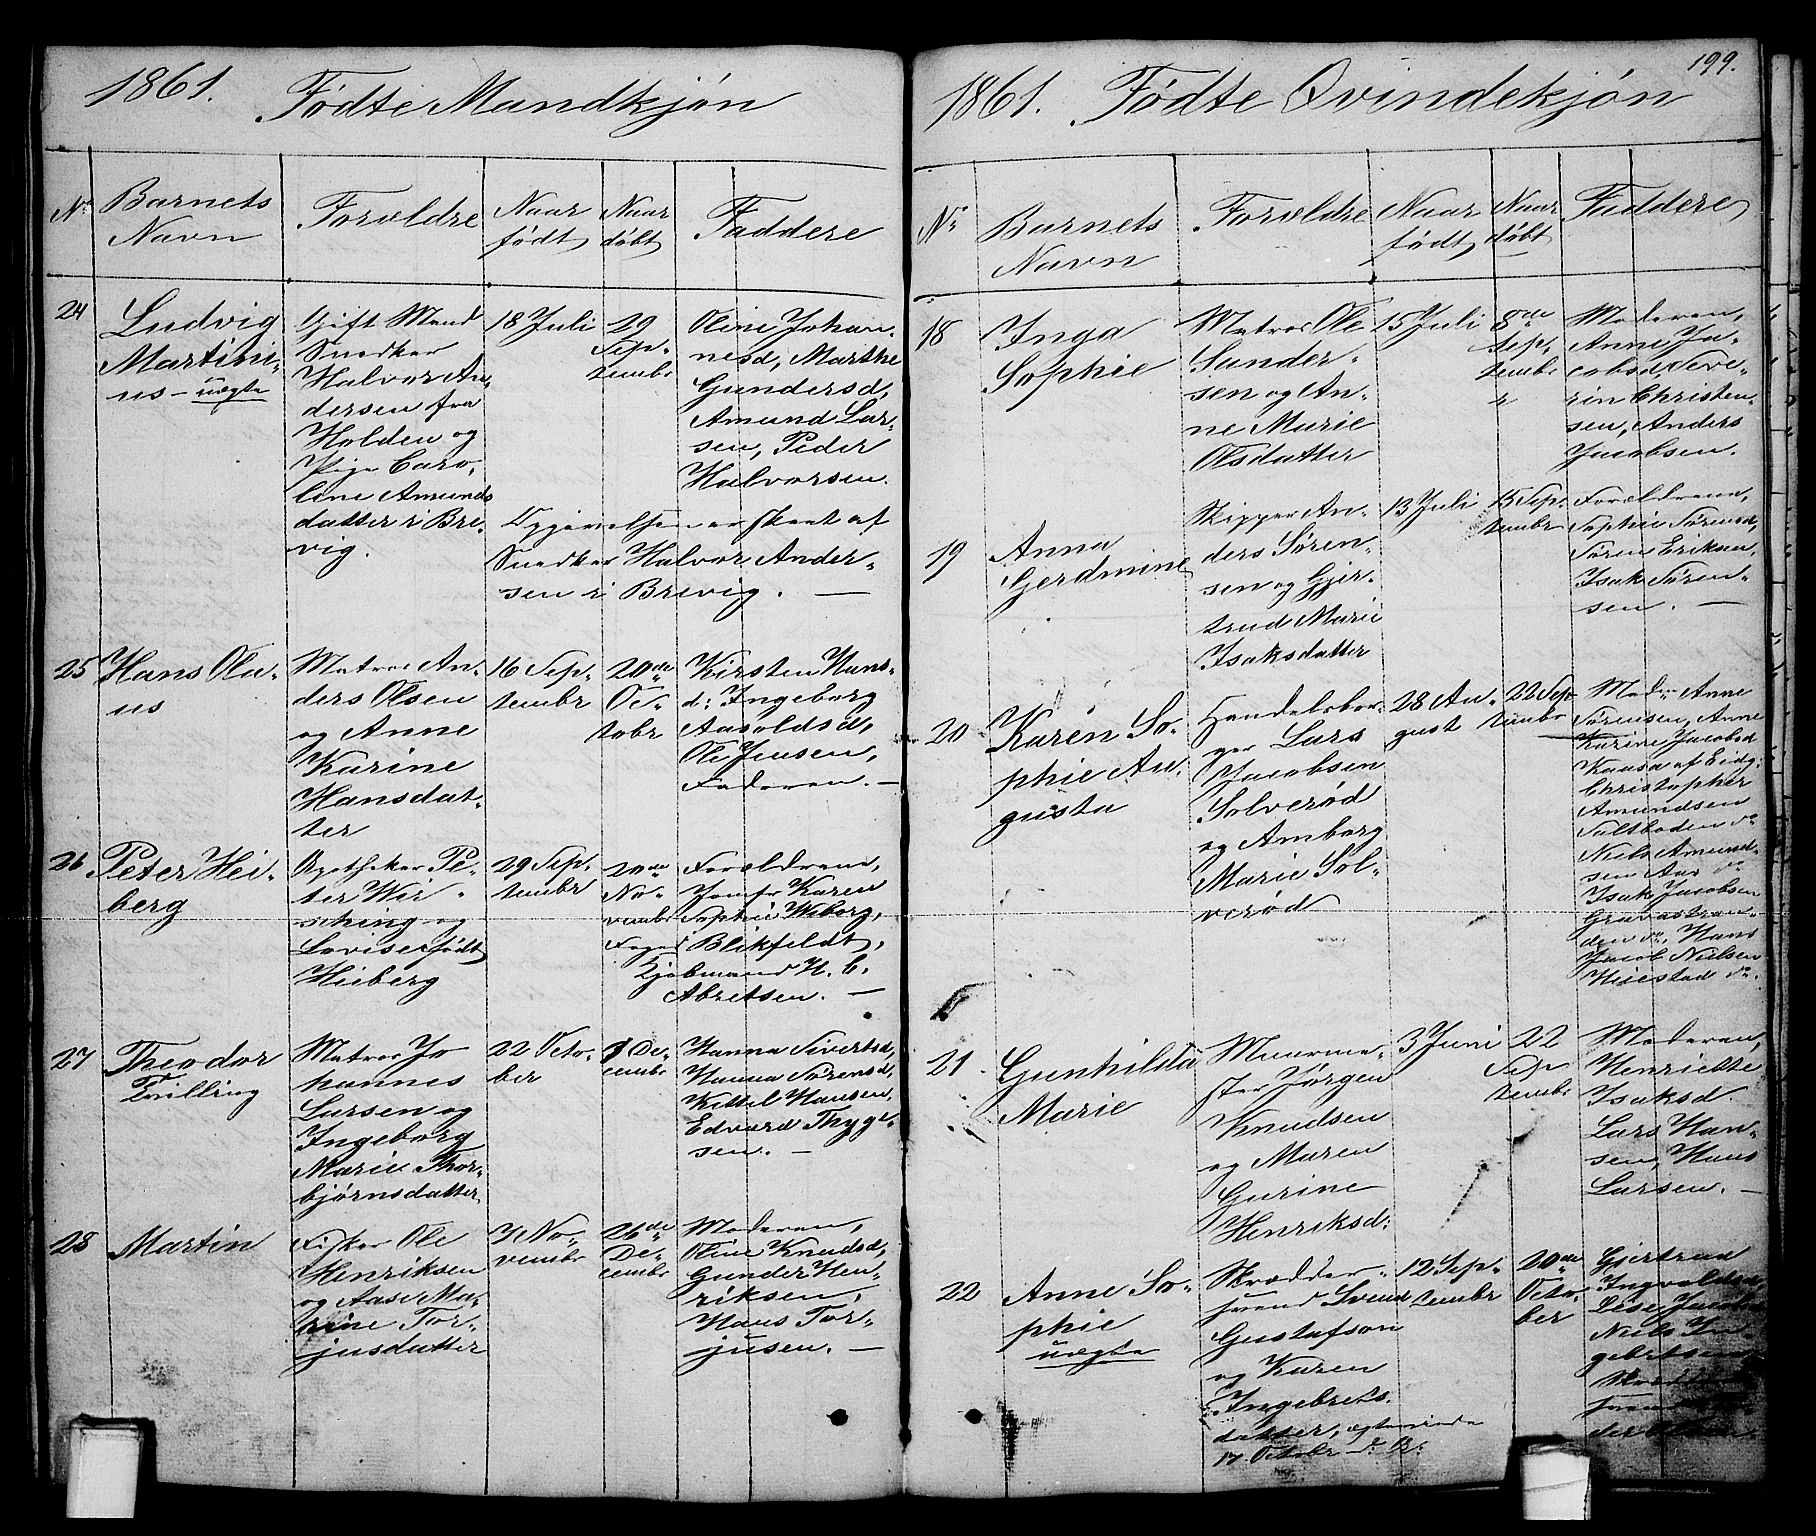 1861. Fødte Mandkjøn
No
Barnets
Navn
Forældre
Naar
født
Naar
døbt
Faddere
24
Ludvig
Martini-
us - uægte
Gift Mand
Snedker
Halvor An
dersen fra
Holden og
Pige Caro,
line Amunds
datter i Bre-
vig.
18 Juli
29
Sep-
tembr
Oline Johan-
nesd, Marthe
Gundersd,
Amund Lar-
sen, Peder
Halvorsen.
er skeet af
Snedker Halvor Ander-
sen i Brevig. —
25
Hans Ola-
us
Matros An-
ders Olsen
og Anne
Karine
Hansdat-
ter
16 Sep-
tembr
20de
Oc-
tobr
Kirsten Hans-
d: Ingeborg
Aasoldsd,
Ole Jensen,
Faderen. —
26
Peter Hei-
berg
Apotheker Pe-
ter Wir-
sching og
Lovise født
Heiberg
29 Sep-
tembr
20de
No-
vembr
Forældrene,
Jomfr Karen
Sophie Wiborg,
Foged Blikfeldt,
Kjøbmand H. C.
Abretsen. —
27
Theodor
Tvilling
Matros Jo
hannes
Larsen og
Ingeborg
Marie Thor-
bjørnsdatter
22 Octo-
ber
1 De-
cembr
Hanna Sivertsd,
Hanna Sørensd,
Kittel Hansen,
Edvard Thyge-
sen. —
28
Martin
Fisker Ole
Henriksen
og Aase Ma-
rine Tor-
jusdatter
7 No-
vembr
26de
De-
cembr
Moderen,
Oline Knudsd,
Gunder Hen-
riksen,
Hans Tor-
jusen. —
199.
1861. Fødte Qvindekjøn
No
Barnets
Navn
Forældre
Naar
født
Naar
døbt
Faddere
18
Inga
Sophie
Matros Ole
Gunder-
sen og An-
ne Marie
Olsdatter
15 Juli
8de
Sep-
tembr
r
Moderen,
Anne Ja-
cobsd, Seve-
rin Christen-
sen, Anders
Jacobsen.
19
Anna
Gjerdmine
Skipper An-
ders Søren-
sen og Gjer-
trud Marie
Isaksdatter
13 Juli
15 Sep-
tembr
Forældrene,
Sophie Sørensd,
Søren Eriksen,
Isak Søren-
sen. —
20
Karen So-
phie Au-
gusta
Handelsbor-
ger Lars
Jacobsen
Solverød
og Amborg
Marie Sol-
verød
28 Au-
gust
22 Sep-
tembr
Anne
Sørensen, Anne
Karine Jacobsd
Kaasa af Eidg:
Christopher
Amundsen
Saltboden do
Niels Amund-
sen Aas do
Isak Jacobsen
Gravastran-
den do, Hans
Jacob Nielsen
Heiestad do.
21
Gunhilda
Marie
Muurme-
ster Jørgen
Knudsen
og Maren
Gurine
Henriksd:
3 Juni
22
Sep-
tembr
Moderen,
Henriette
Isaksd
Lars Han-
sen, Hans
Larsen. —
22
Anne So-
phie
uægte
Skrædder-
svend Svend
Gustafson
og Karen
Ingebrets-
datter, ægteviede
17 Octobr
12 Sep-
tembr
20de
Octo-
ber
Gjertrud
Ingvoldsd,
Lise Jacobsd
Niels In-
gebretsen
Skrædder-
svend